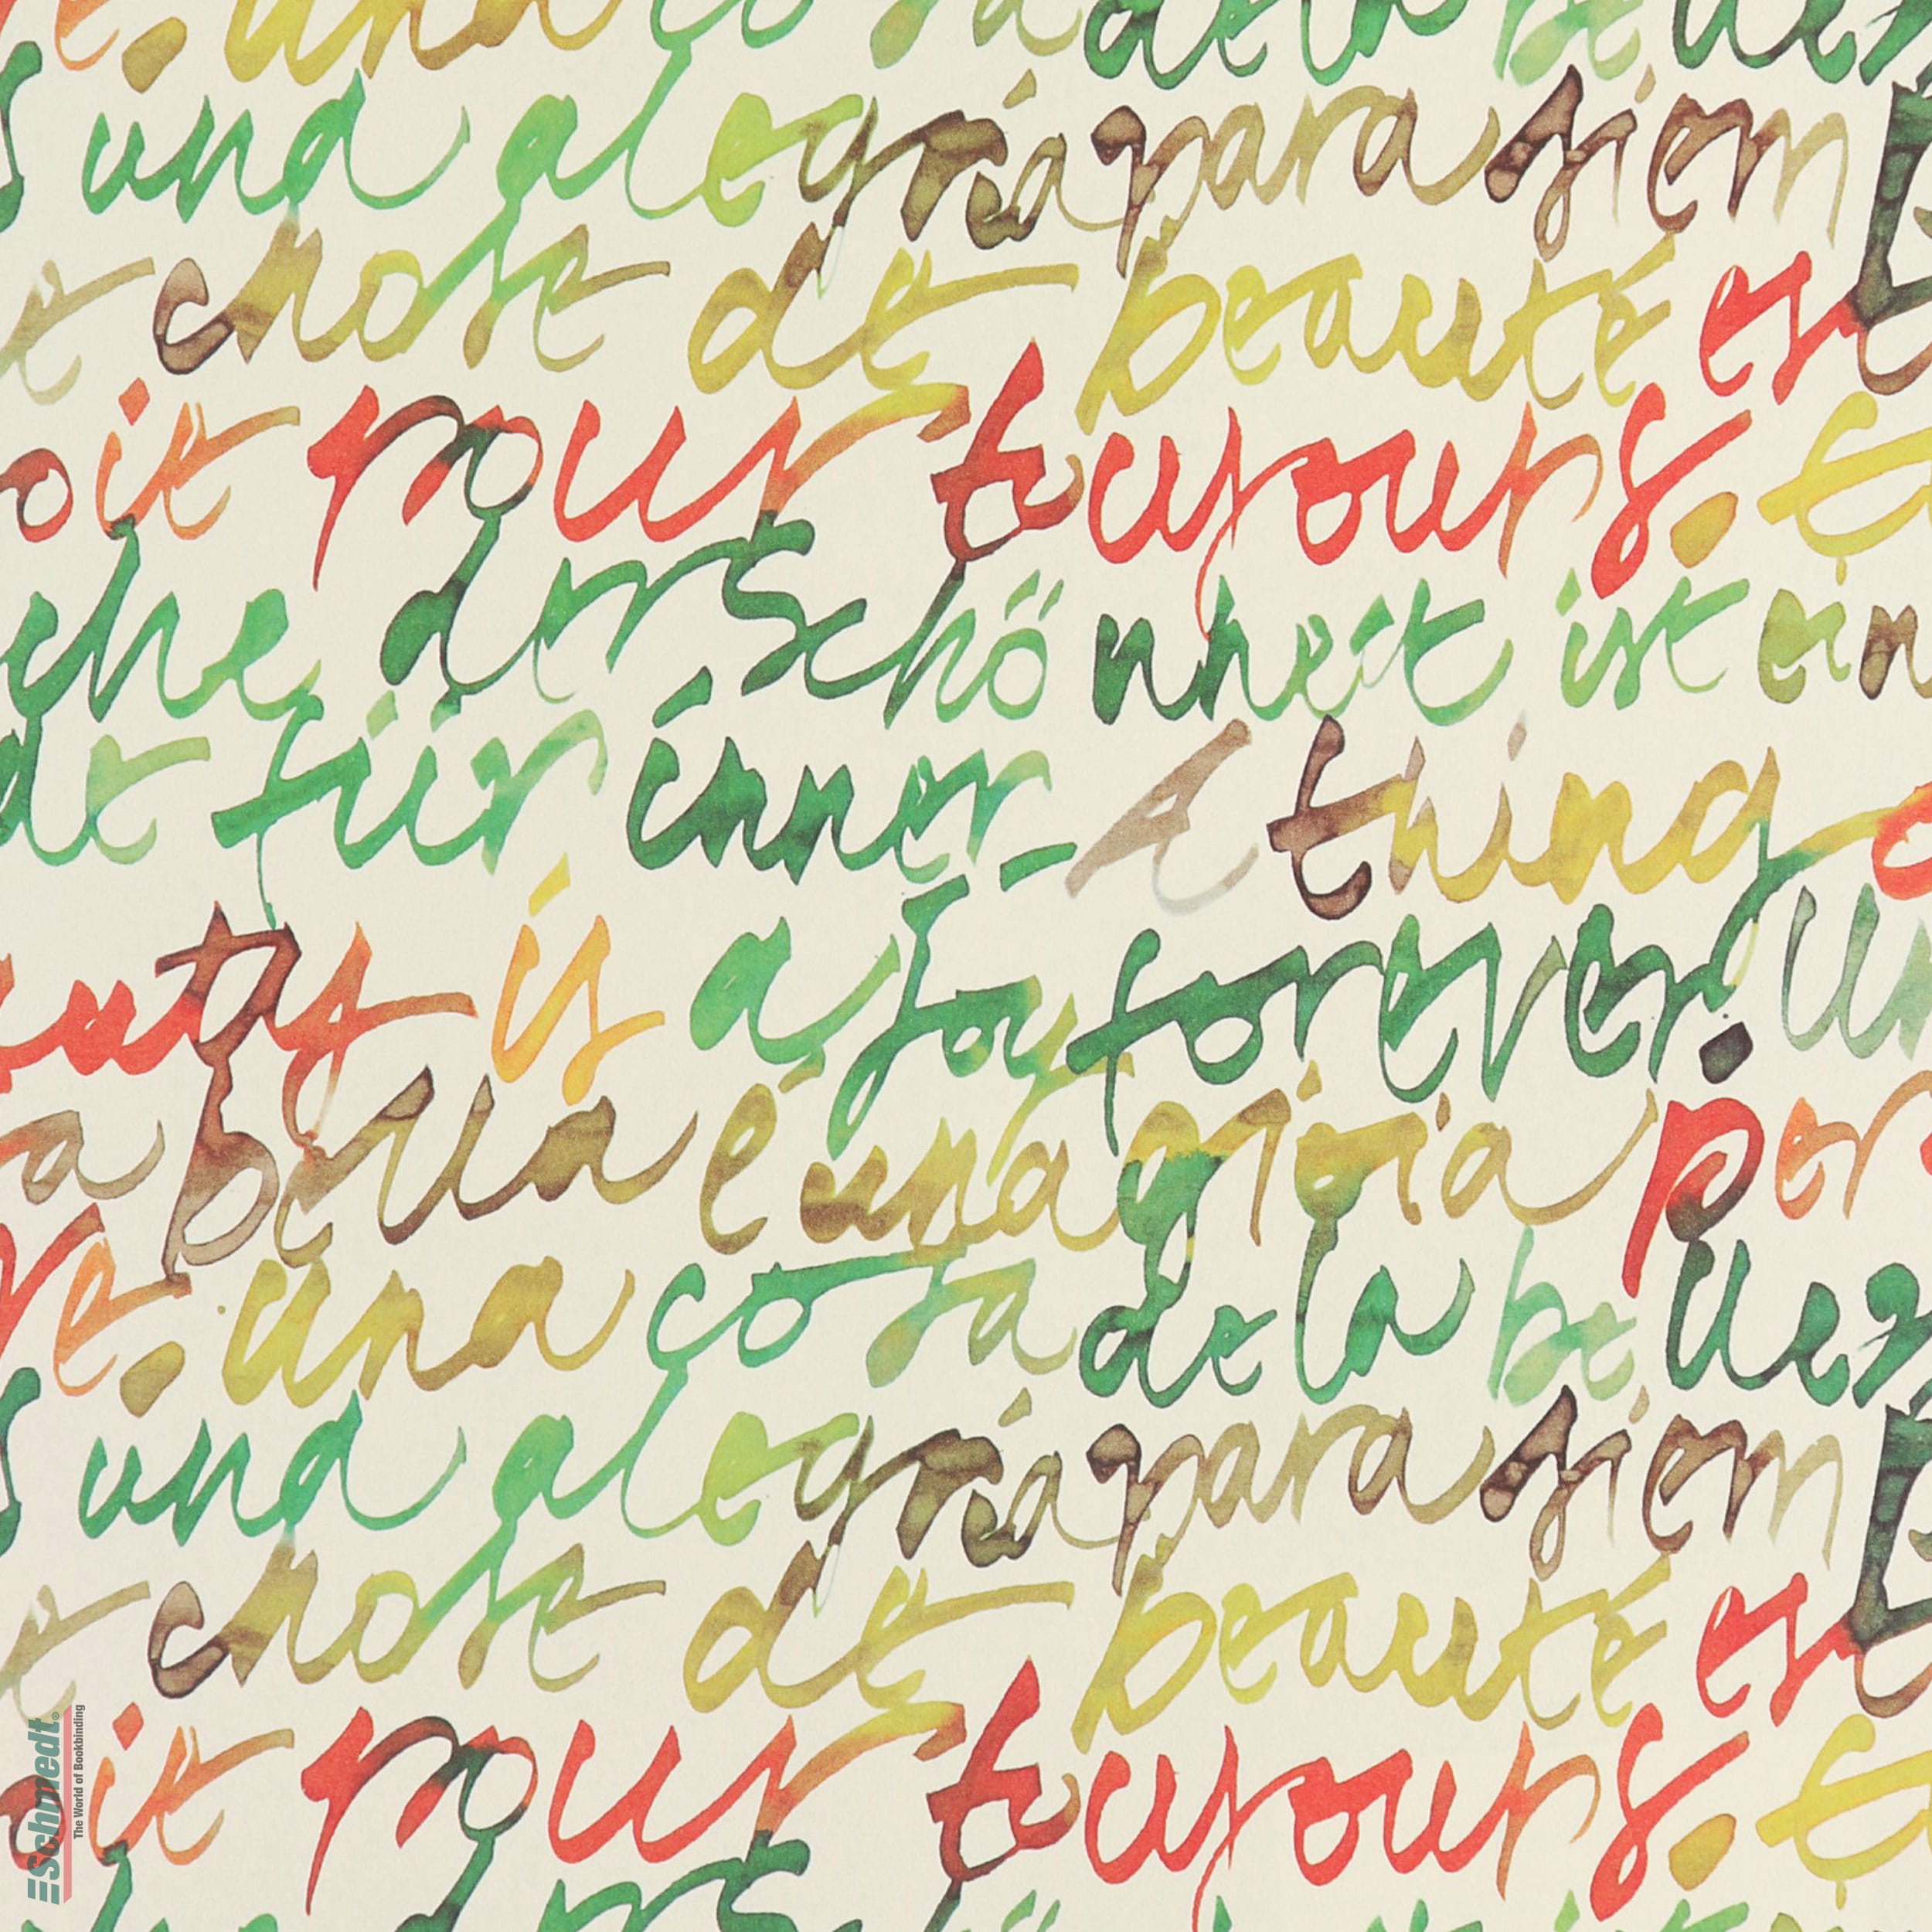 e. una cosa de la bellez
s una alegría para siem
e chose de beauté est
oie pour toujours. E
che der Schönheit ist ein
dt für immer- A thing o
auty is a joy forever. Un
a bella é una gioia per
re. una cosa de la bellez
s una alegría para siem
e chose de beauté est
oie pour toujours. E
che der Schönheit ist
Schmedt®
The World of Bookbinding